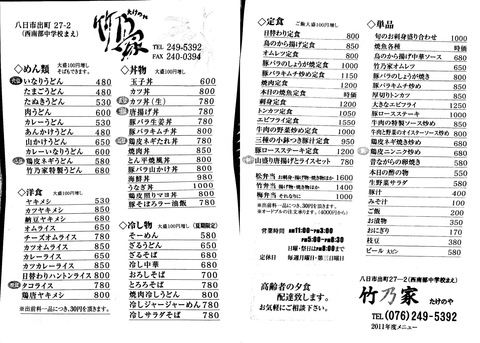 八日市出町 27-2
(西南部中学校まえ)
竹乃家
たけのや
TEL 249-5392
FAX 240-0394
◇めん類 大盛100円増し
そばもできます。
いなりうどん 480
たまごうどん 480
たぬきうどん 530
肉うどん 600
カレーうどん 530
あんかけうどん 480
山かけうどん 650
カレーいなりうどん 600
鶏皮ネギうどん 580
竹乃家特製うどん 680
◇洋食 大盛100円増し
ヤキメシ 530
カツヤキメシ 850
納豆ヤキメシ 680
オムライス 650
チーズオムライス 780
カツオムライス 850
カレーライス 650
カツカレーライス 850
日替わりハントンライス 800
タコライス 780
鶏唐ヤキメシ 800
※出前料一品につき、30円を頂きます。
◇丼物 大盛100円増し
玉子丼 600
カツ丼 800
カツ丼(生) 780
唐揚げ丼 780
豚バラ生姜丼 780
豚バラキムチ丼 800
鶏皮ネギたれ丼 780
焼肉丼 850
とん平焼風丼 800
豚バラ山かけ丼 800
海鮮丼 980
うなぎ丼 1000
鶏皮照りマヨ丼 800
豚そぼろラー油飯 780
◇冷し物 大盛100円増し (夏期限定)
そーめん 580
ざるうどん 650
ざるそば 650
冷し中華 680
おろしそば 700
とろろそば 780
焼肉冷しうどん 800
冷しジャージャーめん 780
冷しサラダそば 780
◇定食 ご飯大盛100円増し
日替わり定食 800
鳥のから揚げ定食 850
オムレツ定食 850
豚バラのしょうが焼き定食 1000
豚バラキムチ炒め定食 1150
焼肉定食 1200
本日の焼魚定食 時価
刺身定食 1200
トンカツ定食 1050
エビフライ定食 1550
牛肉の野菜炒め定食 1000
三種の小鉢つき豚汁定食 900
豚ロースステーキ定食 1200
山盛り唐揚げとライスセット 780
松弁当 お刺身・揚げ物・焼き物ほか 1600
竹弁当 揚げ物・焼き物ほか 1400
梅弁当 そのときになに 1000
※出前料一品につき、30円を頂きます。
※オードブルの注文承ります。(4000円から)
営業時間 AM11:00~
PM5:00~PM8:30
日曜・祭日はPM8:00まで
定休日 毎週月曜日・第三日曜日
高齢者の夕食
配達致します。
お気軽にご相談下さい。
◇単品
旬のお刺身盛り合わせ 1000
焼魚各種 時価
鳥のから揚げ中華ソース 680
竹乃家オムレツ 650
豚バラのしょうが焼き 800
豚バラキムチ炒め 850
厚切りトンカツ 850
大きなエビフライ 1350
豚ロースステーキ 1000
牛肉の特製ソース炒め 800
牛肉と野菜のオイスターソース炒め 800
鶏皮ネギ焼き炒め 580
鶏皮ニンニク炒め 680
昔ながらの卵焼き 580
本日の酢の物 550
生野菜サラダ 580
豚汁 400
みそ汁 100
ご飯 200
お漬物 350
おにぎり 170
枝豆 380
ビール 大ビン 580
八日市出町27-2(西南部中学校まえ)
竹乃家 たけのや
TEL(076)249-5392
2011年度メニュー